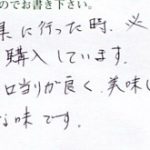 のでお書き下さい。
県に行った時、必
購入しています。
口当りが良く、美味し
な味です。